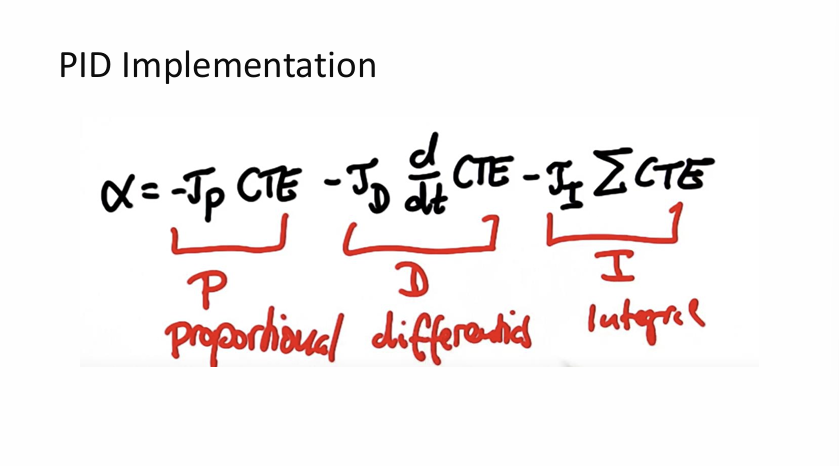 PID Implementation
α = -τ_P CTE - τ_D d/dt CTE - τ_I Σ CTE
P D I
proportional differential Integral